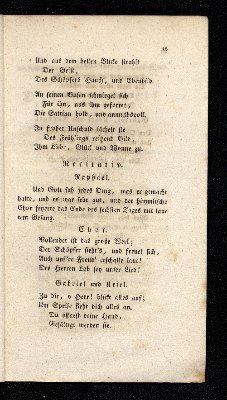 15
Und aus dem hellen Blicke strahlt
Der Geist,
Des Schöpfers Hauch, und Ebenbild.
An seinen Busen schmieget sich
Für ihn, aus ihm geformt,
Die Gattinn hold, und anmuthsvoll.
In froher Unschuld lächelt sie
Des Frühlings reitzend Bild,
Ihm Liebe, Glück und Wonne zu.
Recitativ.
Raphael.
Und Gott sah jedes Ding, was er gemacht
hatte, und es war sehr gut, und der himmlische
Chor feyerte das Ende des sechsten Tages mit lau-
tem Gesang.
Chor.
Vollendet ist das große Werk;
Der Schöpfer sieht's, und freuet sich,
Auch uns're Freud' erschalle laut!
Des Herren Lob sey unser Lied!
Gabriel und Uriel.
Zu dir, o Herr! blickt alles auf;
Um Speise fleht dich alles an.
Du öffnest deine Hand,
Gesättigt werden sie.